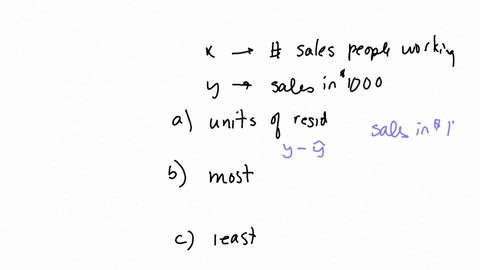 x → # sales people working
y → sales in $1000
a) units of resid
sales in $ 1
y - ŷ
b) most
c) least